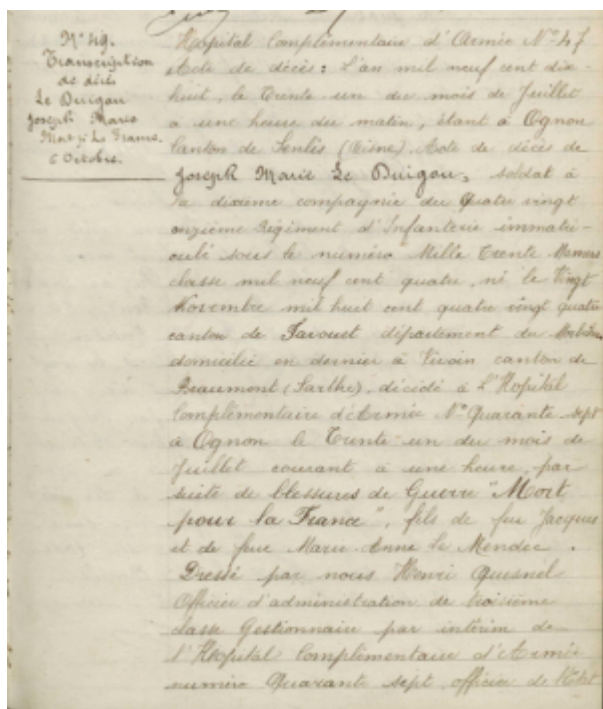 N° 49.
Transcription
de décès
Le Duigou
Joseph Marie
Mort p' La France.
6 Octobre.
Hopital Complémentaire d'Armée N° 47
Acte de décès : L'an mil neuf cent dix-
huit, le trente un du mois de Juillet
à une heure du matin, étant à Ognon
Canton de Senlis (Oisne). Acte de décès de
Joseph Marie Le Duigou, soldat à
la dixième compagnie du Quatre vingt
onzième Régiment d'Infanterie immatri-
culé sous le numéro Mille Trente Mamers
classe mil neuf cent quatre, né le Vingt
Novembre mil huit cent quatre vingt quatre
canton de Faroust département du Morbihan
domicilié en dernier à Vivoin canton de
Beaumont (Sarthe), décédé à L'Hopital
Complémentaire d'Armée N° Quarante sept
à Ognon le Trente-un du mois de
Juillet courant à une heure, par
suite de blessures de Guerre "Mort
pour la France", fils de feu Jacques
et de feue Marie Anne le Mendec.
Dressé par nous Henri Quesnel
Officier d'administration de troisième
classe Gestionnaire par intérim de
l'Hopital Complémentaire d'Armée
numéro Quarante sept, officier de l'Etat